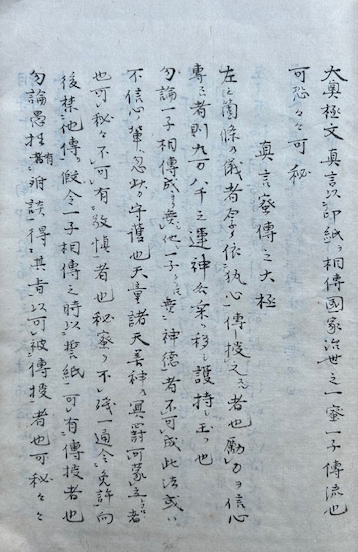 大奥極文真言以印紙ヲ相傳國家治世之一蜜一子傳流也
可恐々々可秘
真言蜜傳之大極
左之箇條ノ儀者厚ク依執心傳授之者也励力ヲ信心
專之者則九万八千之運神ヲ移シ護持シ玉フ也
勿論一子相傳成ト雖他一子ト雖神德者不可成此法或ハ
不信心ノ輩ハ忽此ノ守護也天童諸天善神ノ冥罰可蒙者
也可秘々不可有敬慎者也秘蜜ヲ不残一通令免許向
後禁他傳假令一子相傳之時以誓紙可有傳授者也
勿論愚性有談得其旨以可被傳授者也可秘々々